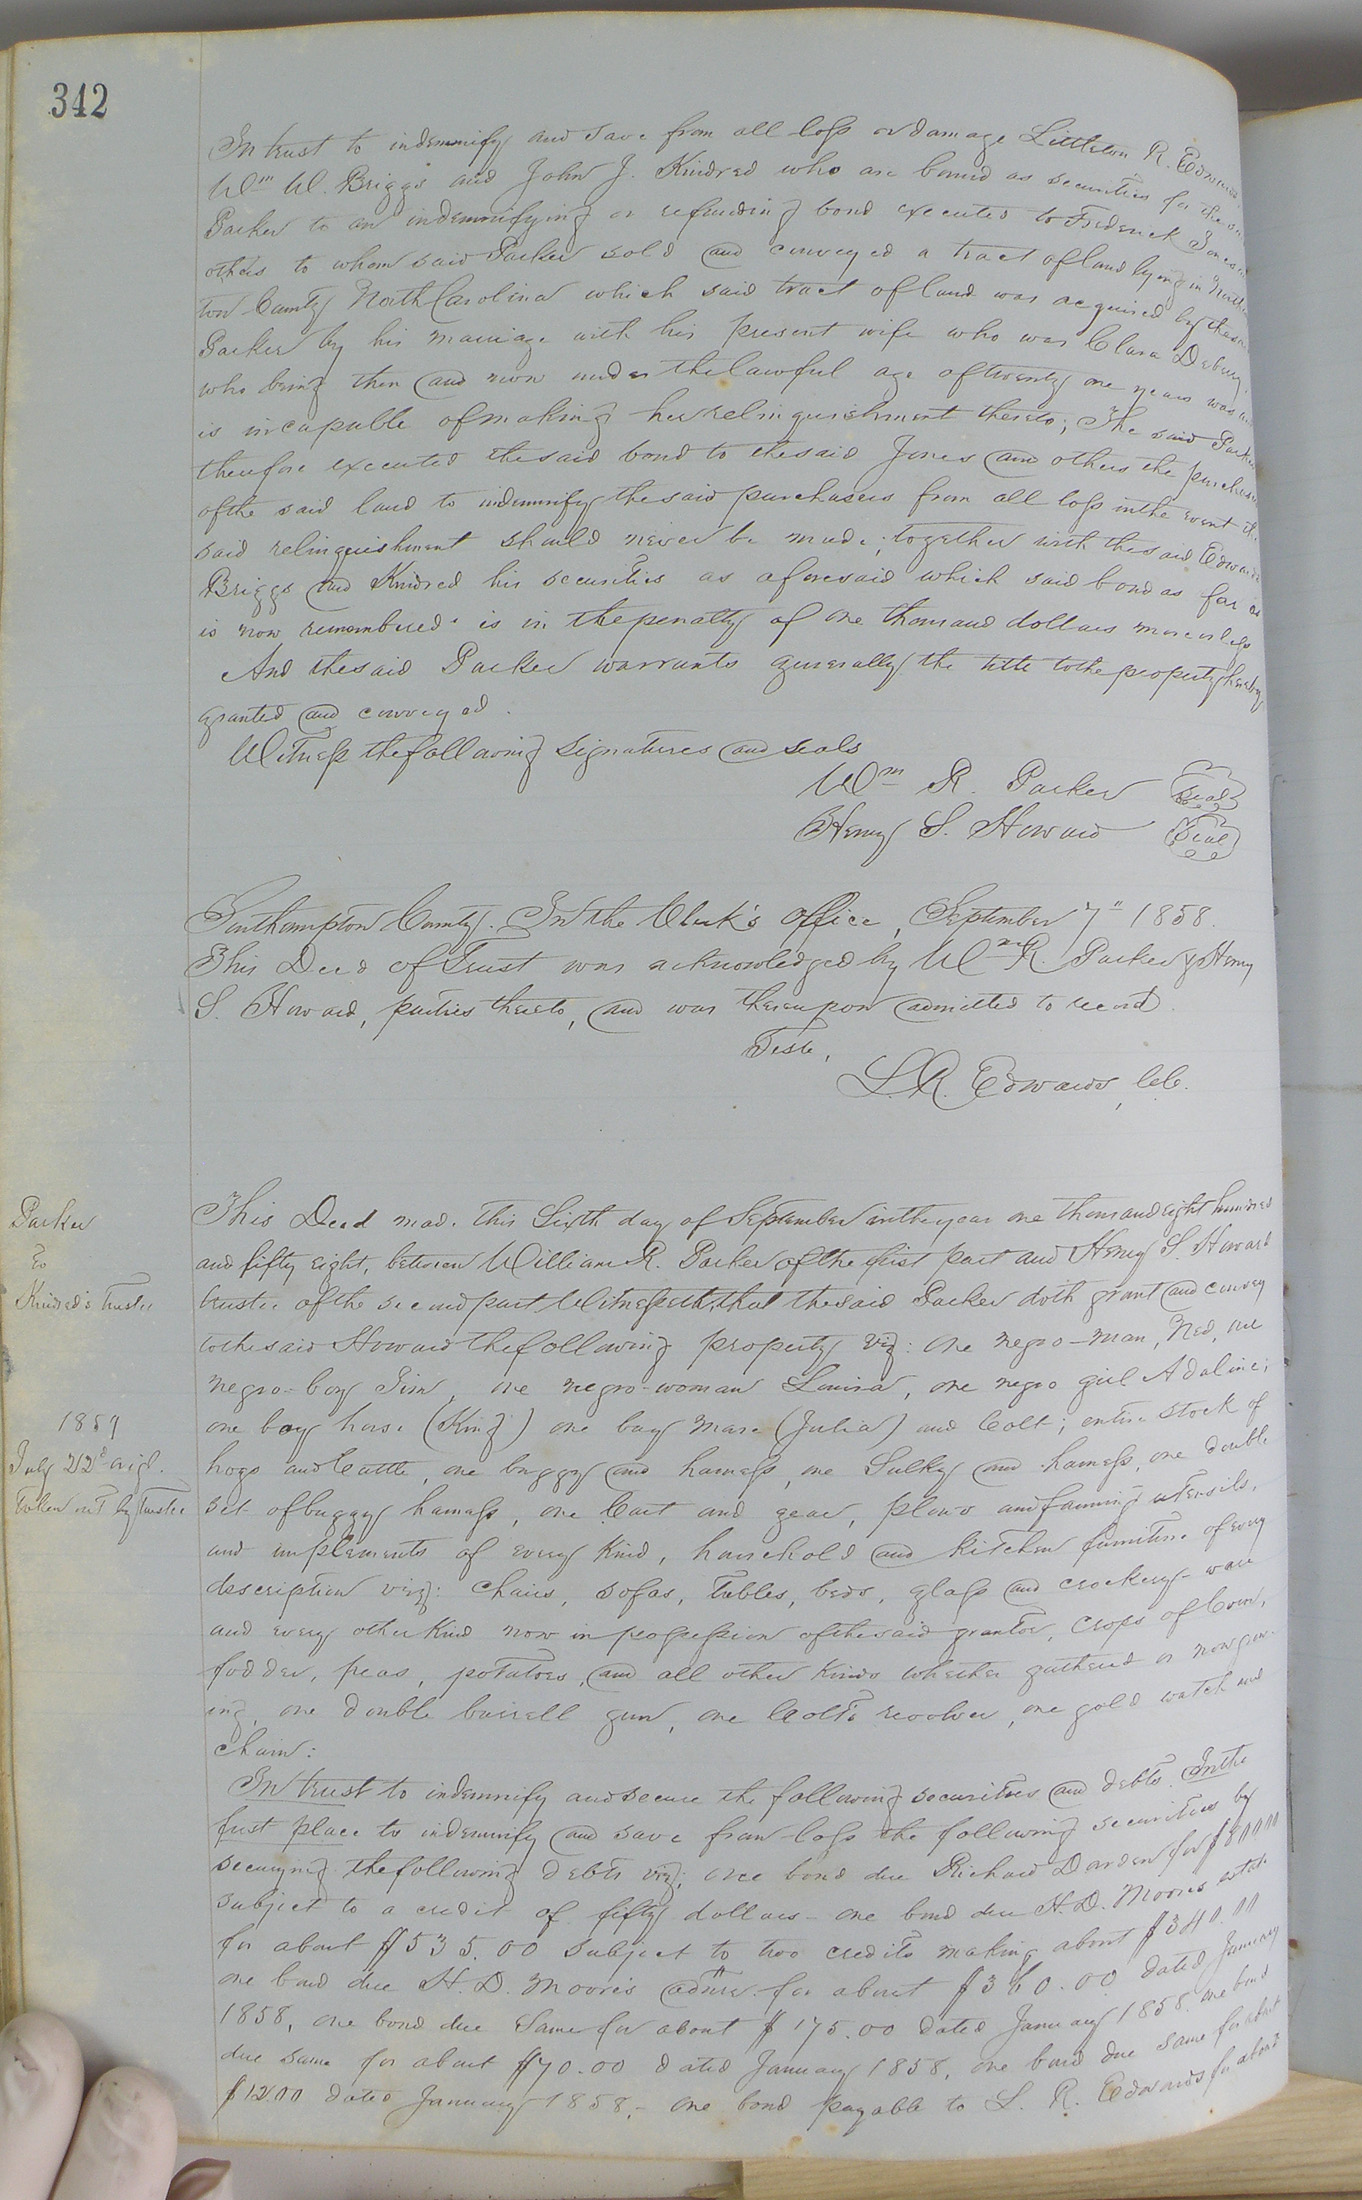 342
In trust to indemnify and save from all loss or damage Littleton R. Edwards
Wm W. Briggs and John J. Kindred who are bound as securities for the sd
Parker to an indemnifying or refunding bond executed to Frederick Jones &
others to whom said Parker sold and conveyed a tract of land lying in Northamp
ton County North Carolina which said tract of land was acquired by the said
Parker by his marriage with his present wife who was Clara Debury
who being then and now under the lawful age of twenty one years was and
is incapable of making her relinquishment thereto; The said Parker
therefore executed the said bond to the said Jones and others the purchasers
of the said land to indemnify the said purchasers from all loss in the event the
said relinquishment should never be made; together with the said Edwards
Briggs and Kindred his securities as aforesaid which said bond as far as
is now remembered is in the penalty of one thousand dollars more or less
And the said Parker warrants generally the title to the property hereby
granted and conveyed.
Witness the following signatures and seals
Wm R. Parker Seal
Henry S. Howard Seal
Southampton County. In the Clerk's office, September 7" 1858.
This Deed of Trust was acknowledged by Wm R. Parker & Henry
S. Howard, parties thereto, and was thereupon admitted to record
Teste,
L. R. Edwards, CC.
Parker
to
Kindred's Trustee
1859
July 22d orig.
taken out by Trustee
This Deed made this Sixth day of September in the year one thousand eight hundred
and fifty eight, between William R. Parker of the first part and Henry S. Howard
trustee of the second part Witnesseth, that the said Parker doth grant and convey
to the said Howard the following property viz: One negro-man, Ned, one
negro-boy Jim, one negro-woman Louisa, one negro girl Adaline;
one bay horse (King) one bay mare (Julia) and Colt; entire stock of
hogs and Cattle, one buggy and harness, one Sulky and harness, one double
set of buggy harness, one Cart and gear, plows and farming utensils,
and implements of every kind, household and kitchen furniture of every
description viz: Chairs, sofas, tables, beds, glass and crockery-ware
and every other kind now in possession of the said grantor, Crops of Corn,
fodder, peas, potatoes, and all other kinds whether gathered or now grow-
ing, one double barrell gun, one Colt's revolver, one gold watch and
chain:
In trust to indemnify and secure the following securities and debts. In the
first place to indemnify and save from loss the following securities by
securing the following debts viz; one bond due Richard Darden for $500.00
subject to a credit of fifty dollars - one bond due H. D. Moores estate
for about $535.00 subject to two credits making about $340.00
one bond due H. D. Moore's admr. for about $360.00 dated January
1858, one bond due Same for about $175.00 dated January 1858. one bond
due same for about $70.00 dated January 1858, one bond due same for about
$12.00 dated January 1858,- one bond payable to L. R. Edwards for about